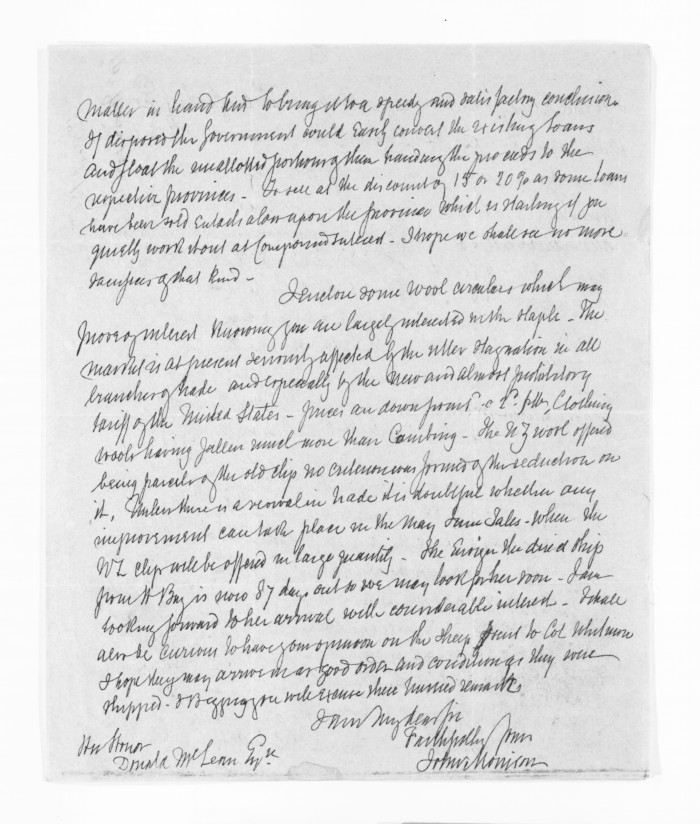 matter in hand and to bring it to a speedy and satisfactory conclusion.
If disposed the Government could easily convert the existing loans
and float the unallotted portions of them handing the proceeds to the
respective provinces - To sell at the discount of 15 or 20% as some loans
have been sold entails a loss upon the province which is startling if you
quietly work it out at Compound Interest - I hope we shall see no more
sacrifices of that kind -
I enclose some wool circulars which may
prove of interest knowing you are largely interested in the staple - The
market is at present seriously affected by the utter stagnation in all
branches of trade and especially by the new and almost prohibitory
tariff of the United States - prices are down from 2d. p lb, Clothing
wools having fallen much more than Combing - The NZ wool offered
being parcels of the old clip no criterion was formed of the reduction on
it. Unless there is a revival in trade it is doubtful whether any
improvement can take place in the May June Sales - when the
NZ clip will be offered in large quantity - The the direct ship
from H Bay is now 87 days out so we may look for her soon - I am
looking forward to her arrival with considerable interest - I shall
also be curious to have your opinion on the sheep sent to Col Whitmore
I hope they may arrive in as good order and condition as they were
shipped - Begging you will excuse these hurried remarks
I am My dear Sir
Faithfully Yours
John Morrison
His Honor
Donald McLean Esqre